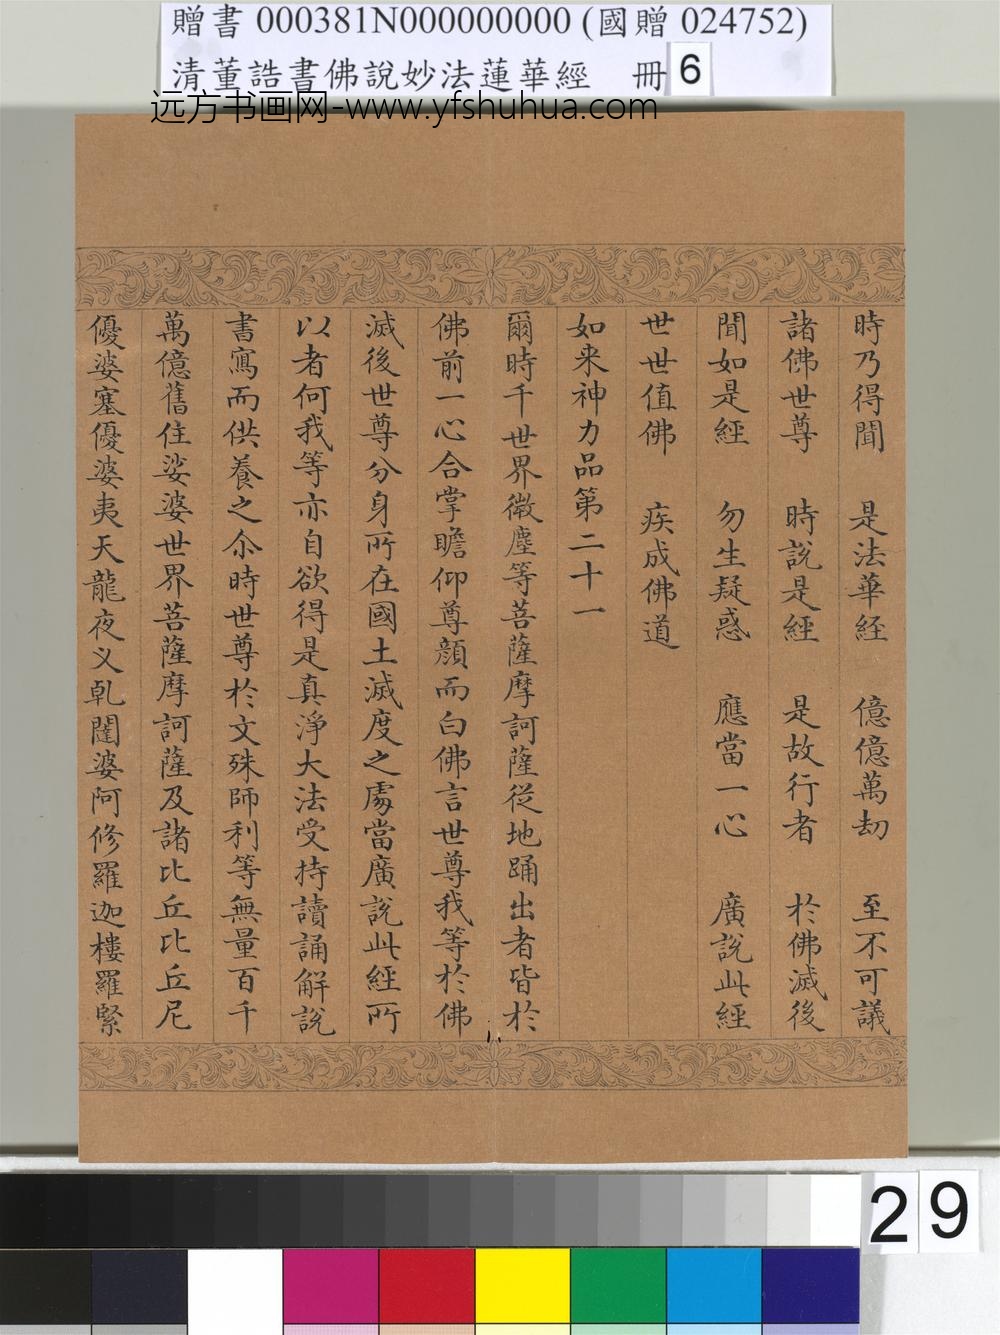 贈書 000381N000000000 (國贈 024752)
清董誥書佛說妙法蓮華經 冊 6
远方书画网-www.yfshuhua.com
時乃得聞 是法華経 億億萬劫 至不可議
諸佛世尊 時說是經 是故行者 於佛滅後
聞如是經 勿生疑惑 應當一心 廣說此經
世世值佛 疾成佛道
如来神力品第二十一
爾時千世界微塵等菩薩摩訶薩從地踊出者皆於
佛前一心合掌瞻仰尊顏而白佛言世尊我等於佛
滅後世尊分身所在國土滅度之處當廣說此經所
以者何我等亦自欲得是真淨大法受持讀誦解說
書寫而供養之尒時世尊於文殊師利等無量百千
萬億舊住娑婆世界菩薩摩訶薩及諸比丘比丘尼
優婆塞優婆夷天龍夜义乹闥婆阿修羅迦樓羅緊
29